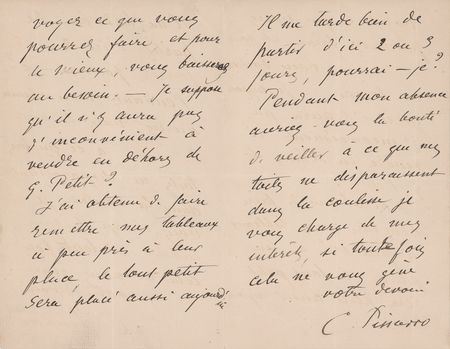 voyez ce que vous
pourrez faire et pour
le vieux, vous baisserez
au besoin. — Je suppose
qu'il n'y aura pas
d'inconvénient à
vendre en déhors de
G. Petit?
J'ai obtenu de faire
remettre mes tableaux
à peu près à leur
place le tout petit
sera placé aussi aujourd'hui
Il me tarde bien de
partir d'ici 2 ou 3
jours, pourrai-je?
Pendant mon absence
auriez-vous la bonté
de veiller à ce que mes
toiles ne disparaissent
dans la coulisse je
vous charge de mes
intérêts, si toutefois
cela ne vous gène
votre dévoué
C. Pissarro